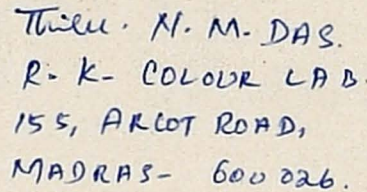 Thiru. N. M. DAS.
R. K. COLOUR LAB.
155, ARCOT ROAD,
MADRAS- 600 026.